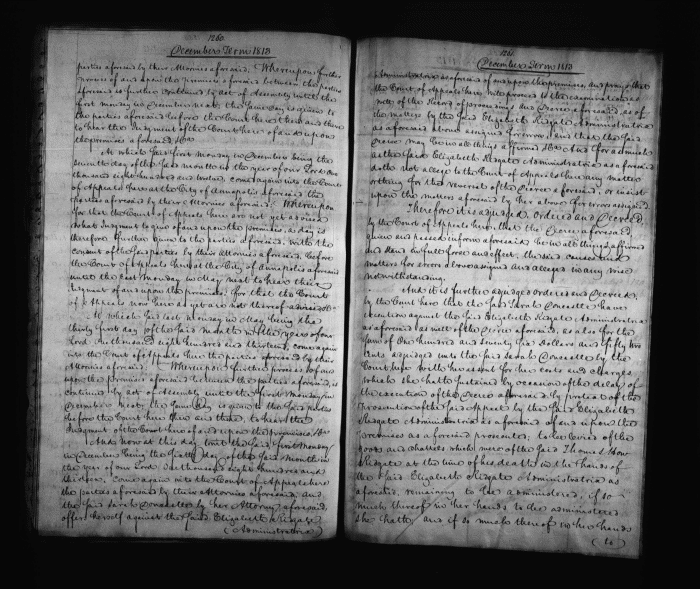 1260
December Term 1813
parties aforesaid by their Attornies aforesaid; Whereupon further
process of and upon the premises aforesaid between the parties
aforesaid is further continued by act of Assembly until the
first Monday in December next, the same day is given to
the parties aforesaid before the Court here then and there
to hear the Judgment of the Court here of and upon
the premises aforesaid &c
At which said first Monday in December being the
seventh day of the said month in the year of our Lord one
thousand eight hundred and twelve come again into the Court
of Appeals here at the City of Annapolis aforesaid the
parties aforesaid by their Attornies aforesaid; Whereupon
for that the Court of Appeals here are not yet advised
what Judgment to give of and upon the premises, a day is
therefore further given to the parties aforesaid, with the
consent of the said parties by their Attornies aforesaid, before
the Court of Appeals here at the City of Annapolis aforesaid
until the last Monday in May next to hear their
Judgment of and upon the premises, for that the Court
of Appeals now here as yet are not thereof advised &c
At which said last Monday in May being the
thirty first day of the said month in the year of our
Lord One thousand eight hundred and thirteen, come again
into the Court of Appeals here the parties aforesaid by their
Attornies aforesaid; Whereupon further process of and
upon the premises aforesaid between the parties aforesaid, is
continued by act of Assembly until the first Monday in
December next, the same day is given to the said parties
before the Court here then and there to hear the
Judgment of the Court here of and upon the premises &c
And now at this day to wit the said first Monday
in December being the sixth day of the said month in
the year of our Lord One thousand eight hundred and
thirteen, Come again into the Court of Appeals here
the parties aforesaid by their Attornies aforesaid, and
the said Sarah by her Attorney aforesaid,
offer herself against the said Elizabeth Ridgate
(Administratrix)
1261
December Term 1813
Administratrix as aforesaid of and upon the premises, and prays that
the Court of Appeals here will proceed to the examination as
well of the Record of proceedings and Decree aforesaid, as of
the matters by the said Elizabeth Ridgate Administratrix
as aforesaid above assigned for error, and that the said
Decree may be in all things affirmed &c And for as much
as the said Elizabeth Ridgate Administratrix as aforesaid
doth not alledge to the Court of Appeals here any matter
or thing for the reversal of the Decree aforesaid, or insist
upon the matters aforesaid by her above for error assigned
Therefore it is adjudged, ordered and Decreed
by the Court of Appeals here, that the Decree aforesaid
given and passed in form aforesaid be in all things affirmed
and stand in full force and effect, the said causes and
matters for errors above assigned and alledged in any wise
notwithstanding.
And it is further adjudged ordered and Decreed,
by the Court here that the said Sarah have
execution against the said Elizabeth Ridgate Administratrix
as aforesaid as well of the Decree aforesaid, as also for the
sum of One hundred and seventy six Dollars and fifty two
Cents adjudged unto the said Sarah by the
Court here with her assent for her costs and charges
which she hath sustained by occasion of the delay of
the execution of the Decree aforesaid, by pretext of the
Prosecution of the said Appeal by the said Elizabeth
Ridgate Administratrix as aforesaid of and upon the
premises as aforesaid prosecuted; to be levied of the
goods and chattels which were of the said Thomas How
Ridgate at the time of his death in the hands of
the said Elizabeth Ridgate Administratrix as
aforesaid, remaining to be administered, if so
much thereof in her hands to be administered
she hath; and if so much thereof in her hands
(to)